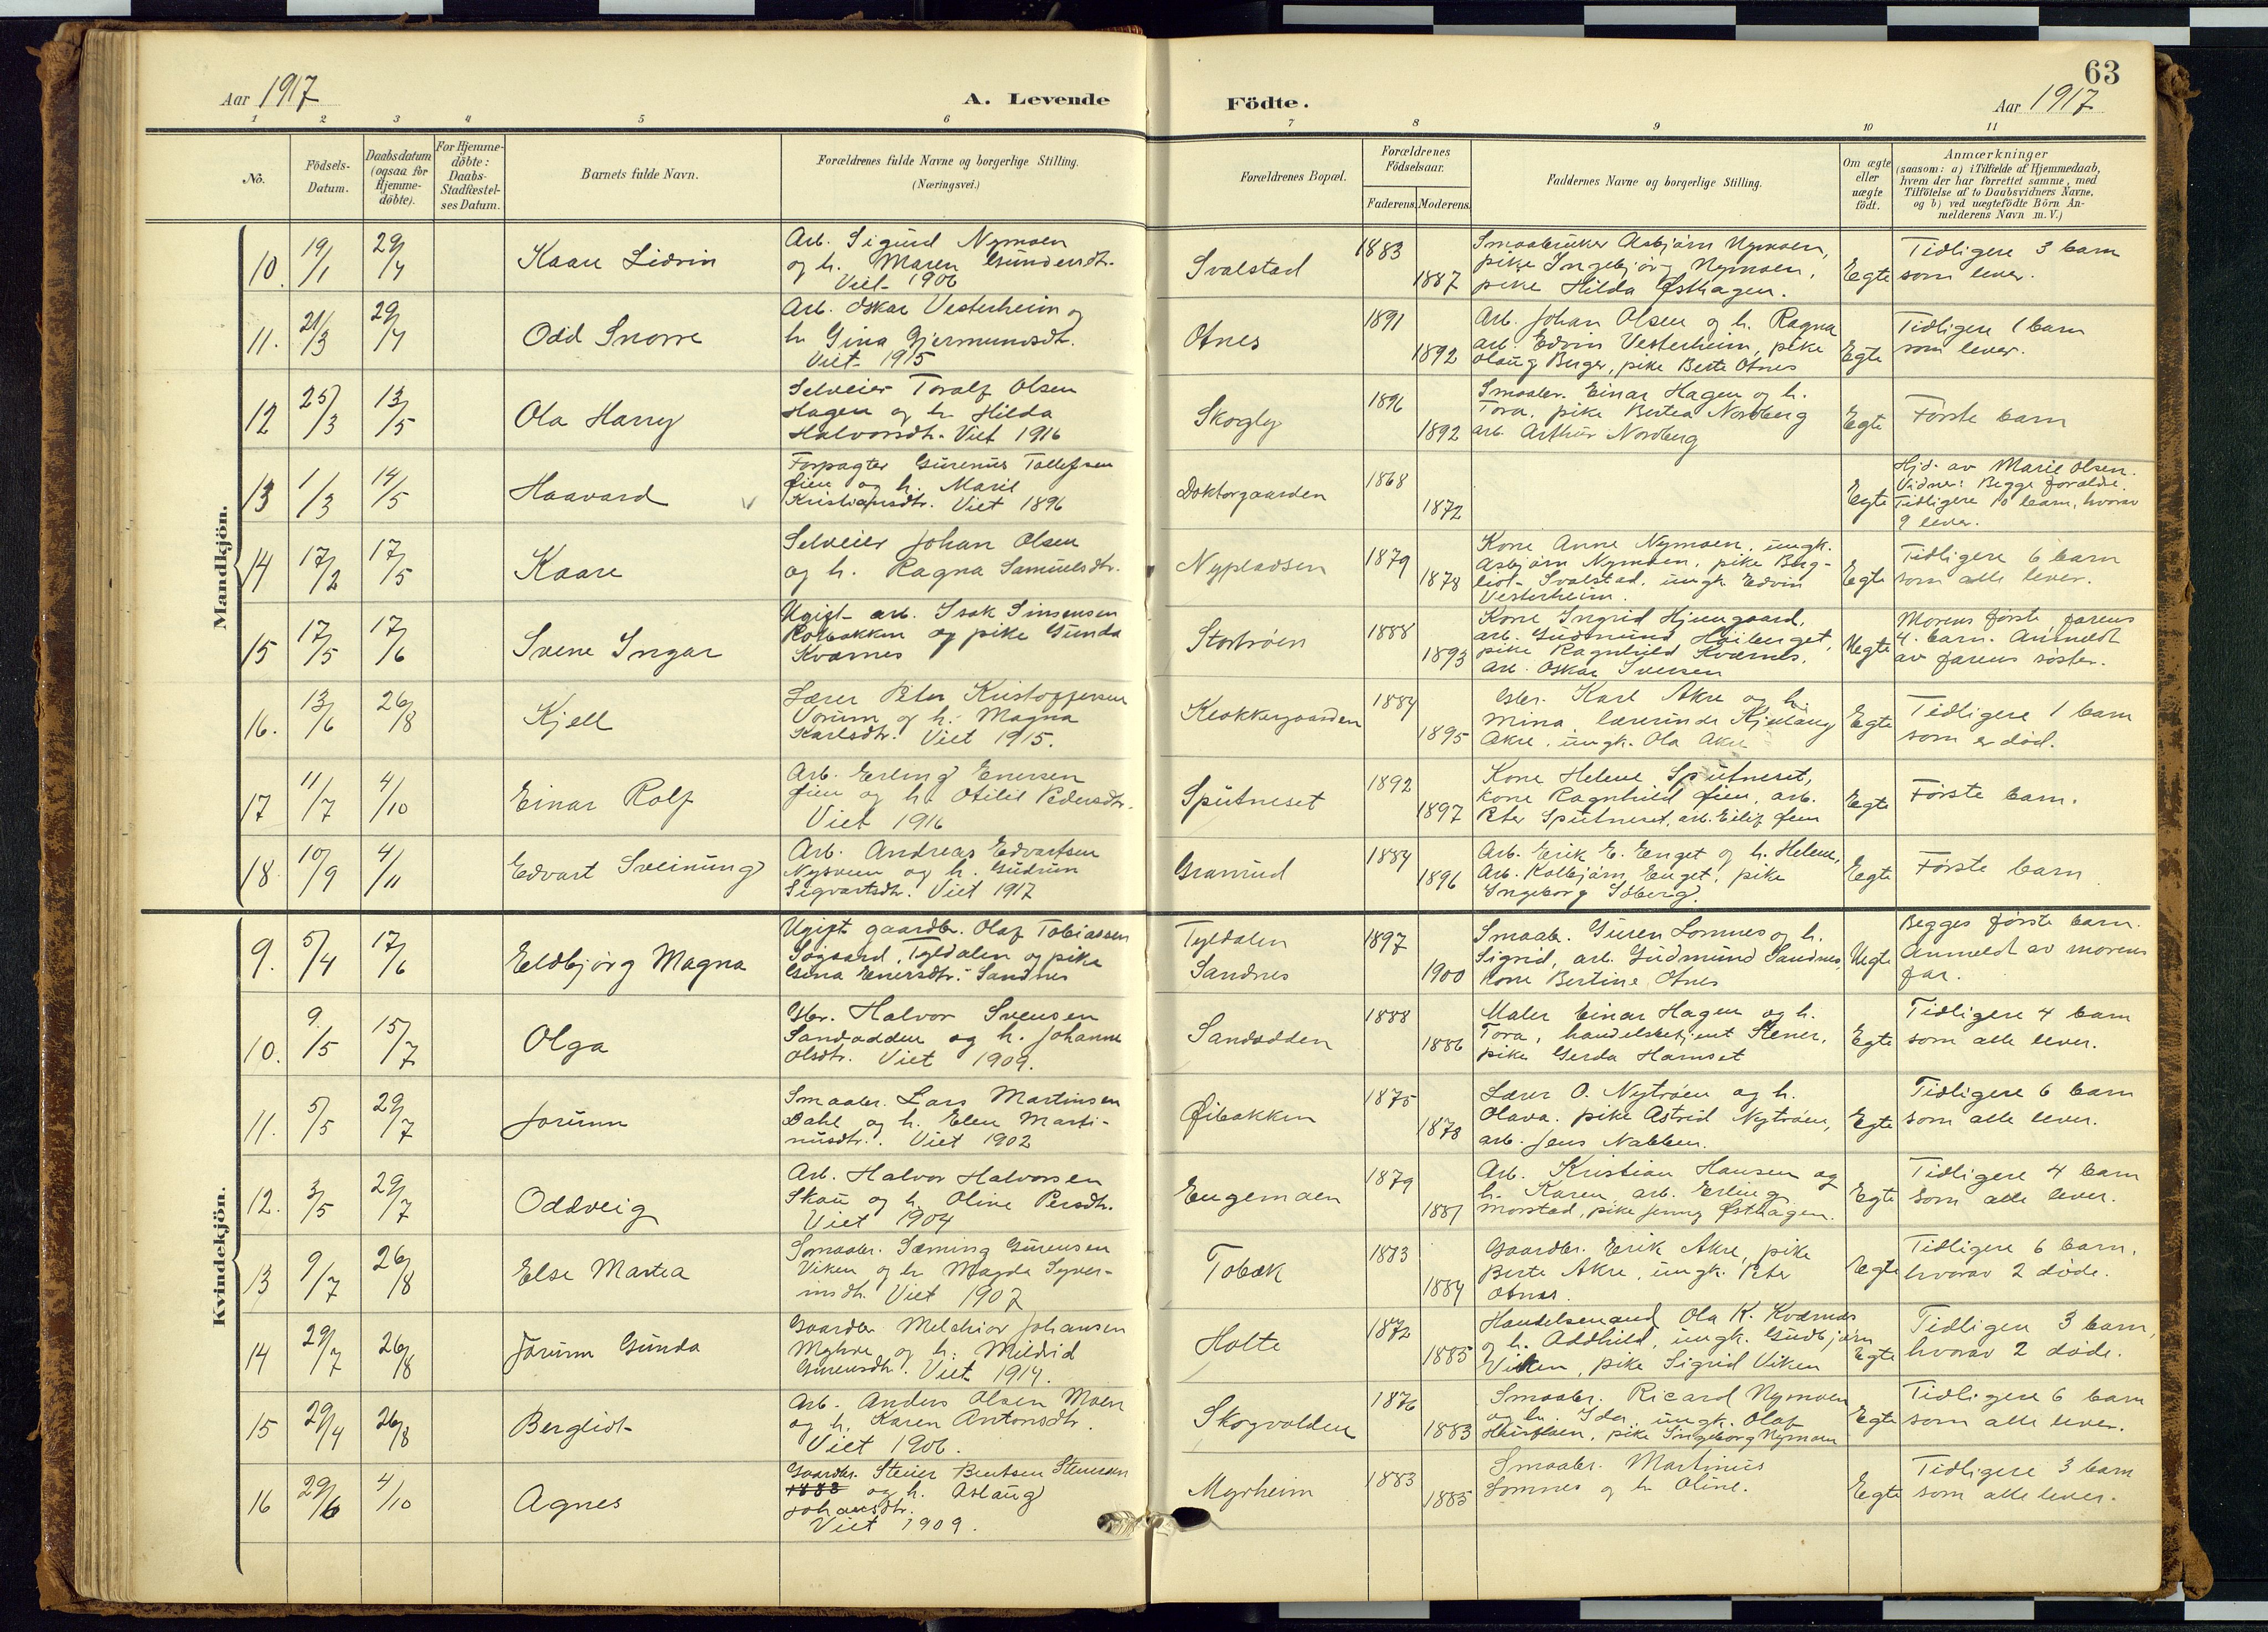 Aar 1917
A. Levende
Födte.
63
Aar 1917
1 2 3 4 5 6 7 8 9 10 11
No.
Födsels-
Datum.
Daabsdatum
(ogsaa for
Hjemme-
döbte).
For Hjemme-
döbte:
Daabs-
Stadfæstel-
ses Datum.
Barnets fulde Navn.
Forældrenes fulde Navne og borgerlige Stilling.
(Næringsvei.)
Forældrenes Bopæl.
Forældrenes
Födselsaar.
Faderens.
Moderens.
Faddernes Navne og borgerlige Stilling.
Om ægte
eller
uægte
födt.
Anmærkninger
(saasom: a) i Tilfælde af Hjemmedaab,
hvem der har forrettet samme, med
Tilföielse af to Daabsvidners Navne,
og b) ved uægtefödte Börn An-
melderens Navn m. V.)
Mandkjön.
10. 19/1 29/4
Kaare Lidvin
Arb. Sigurd Nymoen
og h. Maren Gundersdtr.
Viet 1906
Svalstad
1883
1887
Smaabruker Asbjörn Nymoen,
pike Ingebjörg Nymoen,
pike Hilda Østhagen.
Egte
Tidligere 3 barn
som lever.
11. 21/3 29/4
Odd Snorre
Arb. Oskar Vesterheim og
h. Gina Gjermundsdt.
Viet 1915
Otnes
1891
1892
Arb. Johan Olsen og h. Ragna
arb. Edvin Vesterheim, pike
Olaug Berger, pike Berte Otnes
Egte
Tidligere 1 barn
som lever.
12 25/3 13/5
Ola Harry
Selveier Toralf Olsen
Hagen og h. Hilda
Halvorsdtr. Viet 1916
Skogly
1896
1892
Smaabr. Einar Hagen og h.
Tora, pike Bertea Nordberg
arb. Arthur Nordberg
Egte
Förste barn
13 1/3 14/5
Haavard
Forpagter Gurenus Tollefsen
Øien og h. Marie
Kristiansdtr. Viet 1896
Doktorgaarden
1868
1872
Egte
Hjd. av Marie Olsen.
Vidner: Begge forældre.
Tidligere 10 barn, hvorav
9 lever.
14 17/2 17/5
Kaare
Selveier Johan Olsen
og h. Ragna Samuelsdtr.
Nypladsen
1879
1878
Kone Anne Nymoen, ungk.
Asbjörn Nymoen, pike Berg-
liot Svalstad, ungk. Edvin
Vesterheim.
Egte
Tidligere 6 barn
som alle lever.
15 17/5 17/6
Svene Ingar
Ugift arb. Isak Simensen
Kolbakken og pike Gunda
Kværnes
Stortröen
1888
1893
Kone Ingrid Hjemgaard,
arb. Gudmund Høiberget,
pike Ragnhild Kværnes,
arb. Oskar Iversen
Uegte
Morens förste, farens
4. barn. Anmeldt
av farens söster.
16. 13/6 26/8
Kjell
Lærer Peter Kristoffersen
Vorum og h. Magna
Karlsdtr. Viet 1915.
Klokkergaarden
1884
1895
Gbr. Karl Akre og h.
Mina lærerinde Kjellaug
Akre, ungk. Ola Akre
Egte
Tidligere 1 barn
som er död.
17 11/7 4/10
Einar Rolf
Arb. Erling Enersen
Øien og h. Otilie Pedersdtr.
Viet 1916
Sputneset
1892
1897
Kone Helene Sputneset,
kone Ragnhild Øien, arb.
Peter Sputneset, arb. Eilif Øien
Egte
Förste barn.
18 10/9 4/11
Edvart Sveinung
Arb. Andreas Edvartsen
Nysveen og h. Gudrun
Sigvartsdtr. Viet 1917
Granrud
1884
1896
Arb. Erik E. Enget og h. Helene,
Arb. Kolbjörn Enget, pike
Ingeborg Idberg.
Egte
Förste barn
Kvindekjön.
9. 5/4 17/6
Eldbjörg Magna
Ugift gaardbr. Olaf Tobiassen
Søgaard, Tyldalen og pike
Gina Enersdtr. Sandnes
Tyldalen
Sandnes
1897
1900
Smaabr. Guren Lomnes og h.
Sigrid, arb. Gudmund Sandnes,
kone Bertine Otnes
Uegte
Begges förste barn.
Anmeldt av morens
far.
10. 9/5 15/7
Olga
Gbr. Halvor Svensen
Sandodden og h. Johanne
Olsdtr. Viet 1909.
Sandodden
1888
1886
Maler Einar Hagen og h.
Tora, handelsbetjent Stener,
pike Gerda Harnset
Egte
Tidligere 4 barn
som alle lever.
11. 5/5 29/7
Jorunn
Smaabr. Lars Martinsen
Dahl og h. Elen Marti-
nusdtr. Viet 1902
Øibakken
1875
1878
Lærer O. Nytröen og h.
Olava, pike Astrid Nytröen,
arb. Jens Nabben.
Egte
Tidligere 6 barn
som alle lever.
12. 3/5 29/7
Oddveig
Arb. Halvor Halvorsen
Skau og h. Oline Persdtr.
Viet 1904
Engemoen
1879
1881
Arb. Kristian Hansen og
h. Karen, arb. Erling
Morstad, pike Jenny Østhagen.
Egte
Tidligere 4 barn
som alle lever.
13 9/7 26/8
Else Martea
Smaabr. Sæming Gurensen
Viken og h. Magda Syver-
insdtr. Viet 1907
Tobæk
1883
1884
Gaardbr. Erik Akre, pike
Berte Akre, ungk. Peter
Otnes.
Egte
Tidligere 6 barn,
hvorav 2 döde.
14 29/7 26/8
Jorunn Gunda
Gaardbr. Melchior Johansen
Myhre og h. Mildrid
Gurensdtr. Viet 1914.
Holte
1872
1885
Handelsmand Ola K. Kværnes
og h. Addhild, ungk. Gudbjörn
Viken, pike Sigrid Viken
Egte
Tidligere 3 barn,
hvorav 2 döde.
15 29/4 26/8
Bergliot
Arb. Anders Olsen Moen
og h. Karen Antonsdtr.
Viet 1906.
Skogvolden
1876
1883
Smaabr. Ricard Nymoen
og h. Ida, ungk. Olaf
pike Ingeborg Nymoen
Egte
Tidligere 6 barn
som alle lever.
16 29/6 4/10
Agnes
Gaardbr. Steiner Bentsen Stenersen
1883 og h. Aslaug
Johansdtr.
Viet 1909.
Myrheim
1883
1885
Smaabr. Martinus
Lomnes og h. Oline.
Egte
Tidligere 3 barn
som alle lever.